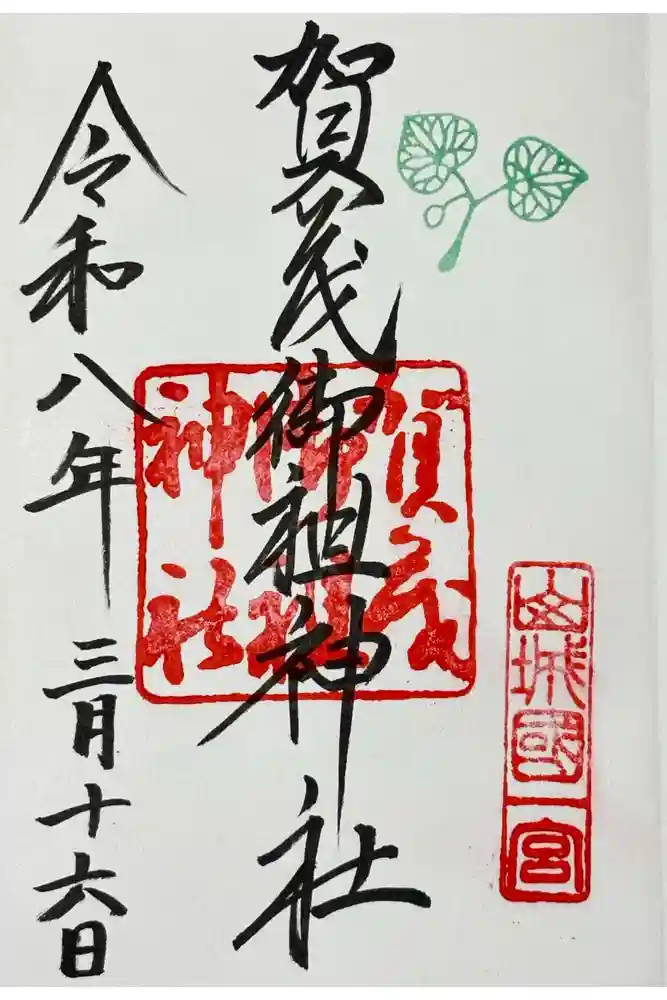 山城國一宮
賀茂御祖神社
賀茂御祖神社
令和八年三月十六日